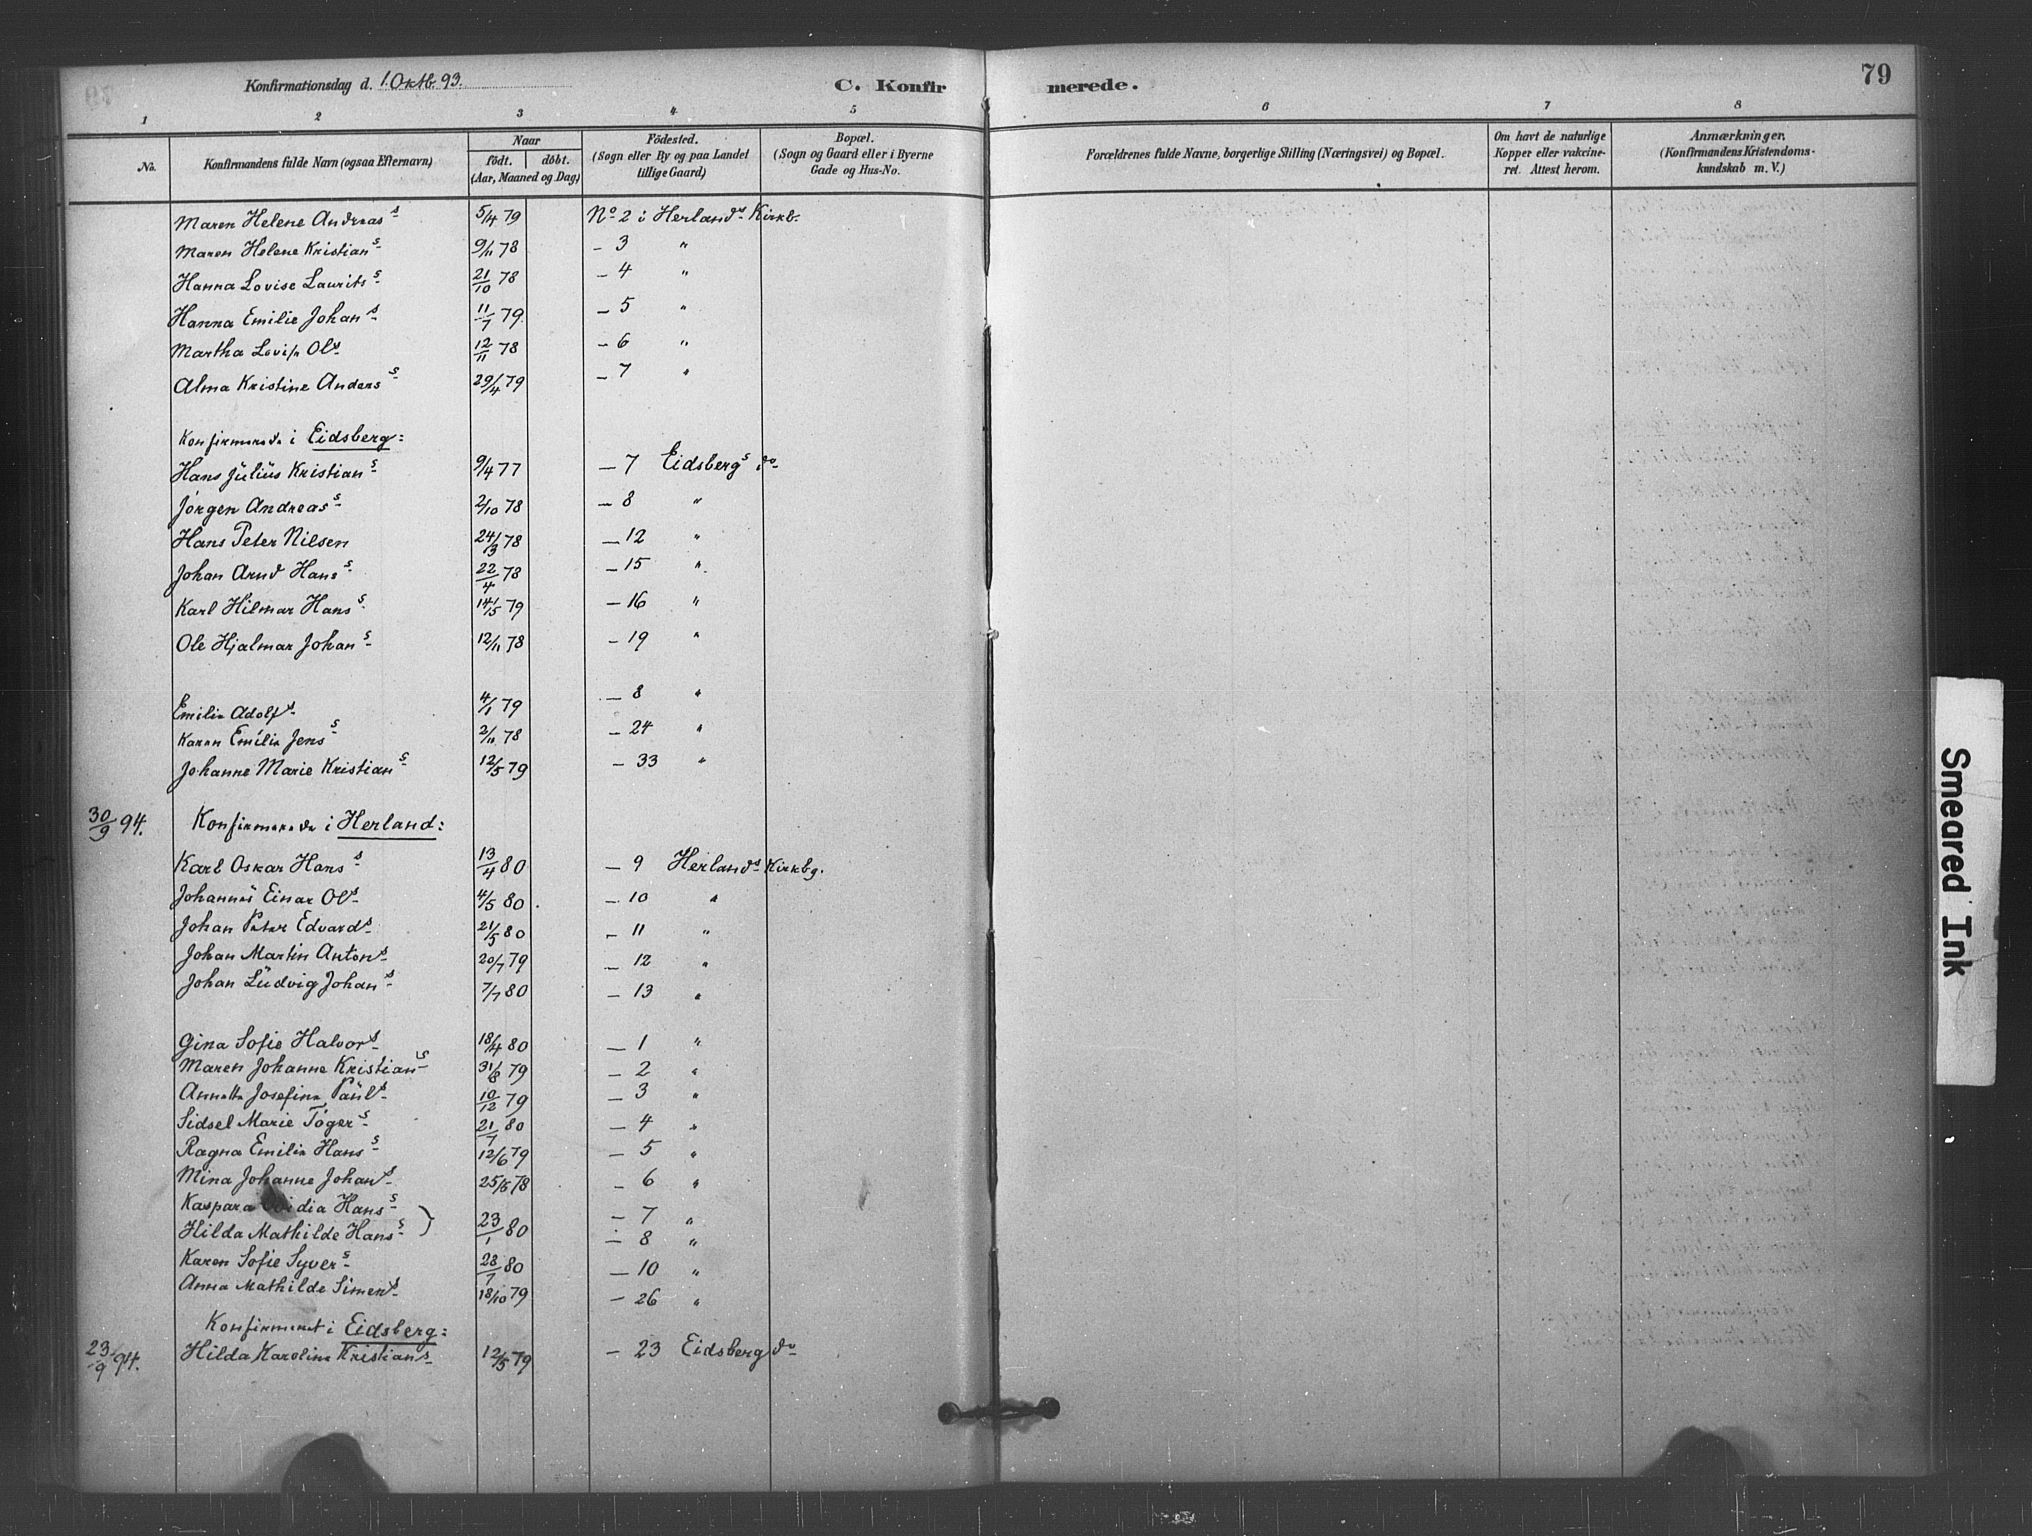 Konfirmationsdag d. 1. Oktb. 93. C. Konfirmerede. 79
1 2 3 4 5 6 7 8
No. Konfirmandens fulde Navn (ogsaa Efternavn) Naar födt. döbt. (Aar, Maaned og Dag) Födested. (Sogn eller By og paa Landet tillige Gaard) Bopæl. (Sogn og Gaard eller i Byerne Gade og Hus-No. Forældrenes fulde Navne, borgerlige Stilling (Næringsvei) og Bopæl. Om havt de naturlige Kopper eller vakcineret. Attest herom. Anmærkninger. (Konfirmandens Kristendomskundskab m. V.)
Maren Helene Andreas s 5/4 79 No 2 i Herlands Kirkb.
Maren Helene Kristian s 9/11 78 – 3 "
Hanna Lovise Laurits s 21/10 78 – 4 "
Hanna Emilie Johan s 11/7 79 – 5 "
Martha Lovise Ol s 12/11 78 – 6 "
Alma Kristine Anders s 29/4 79 – 7 "
Konfirmerede i Eidsberg:
Hans Julius Kristian s 9/4 77 – 7 Eidsbergs do
Jørgen Andreas s 2/10 78 – 8 "
Hans Peter Nilsen 24/3 78 – 12 "
Johan Arnd Hans s 22/4 78 – 15 "
Karl Hilmar Hans s 14/5 79 – 16 "
Ole Hjalmar Johan s 12/11 78 – 19 "
Emilie Adolf s 4/1 79 – 8 "
Karen Emilie Jens s 2/11 78 – 24 "
Johanne Marie Kristian s 12/5 79 – 33 "
30/9 94. Konfirmerede i Herland:
Karl Oskar Hans s 13/4 80 – 9 Herlands Kirkbg.
Johannes Einar Ol s 4/5 80 – 10 "
Johan Peter Edvard s 21/5 80 – 11 "
Johan Martin Anton s 20/7 79 – 12 "
Johan Ludvig Johan s 7/7 80 – 13 "
Gina Sofie Halvor s 18/4 80 – 1 "
Maren Johanne Kristian s 31/8 79 – 2 "
Annette Josefine Paul s 10/12 79 – 3 "
Sidsel Marie Tøger s 21/7 80 – 4 "
Ragna Emilie Hans s 12/6 79 – 5 "
Mina Johanne Johan s 25/5 78 – 6 "
Kaspara Hans s – 7 "
Hilda Mathilde Hans s } 23/1 80 – 8 "
Karen Sofie Syver s 28/7 80 – 10 "
Anna Mathilde Simen s 18/10 79 – 26 "
Konfirmeret i Eidsberg:
23/9 94. Hilda Karoline Kristians 12/5 79 – 23 Eidsberg do
Smeared Ink